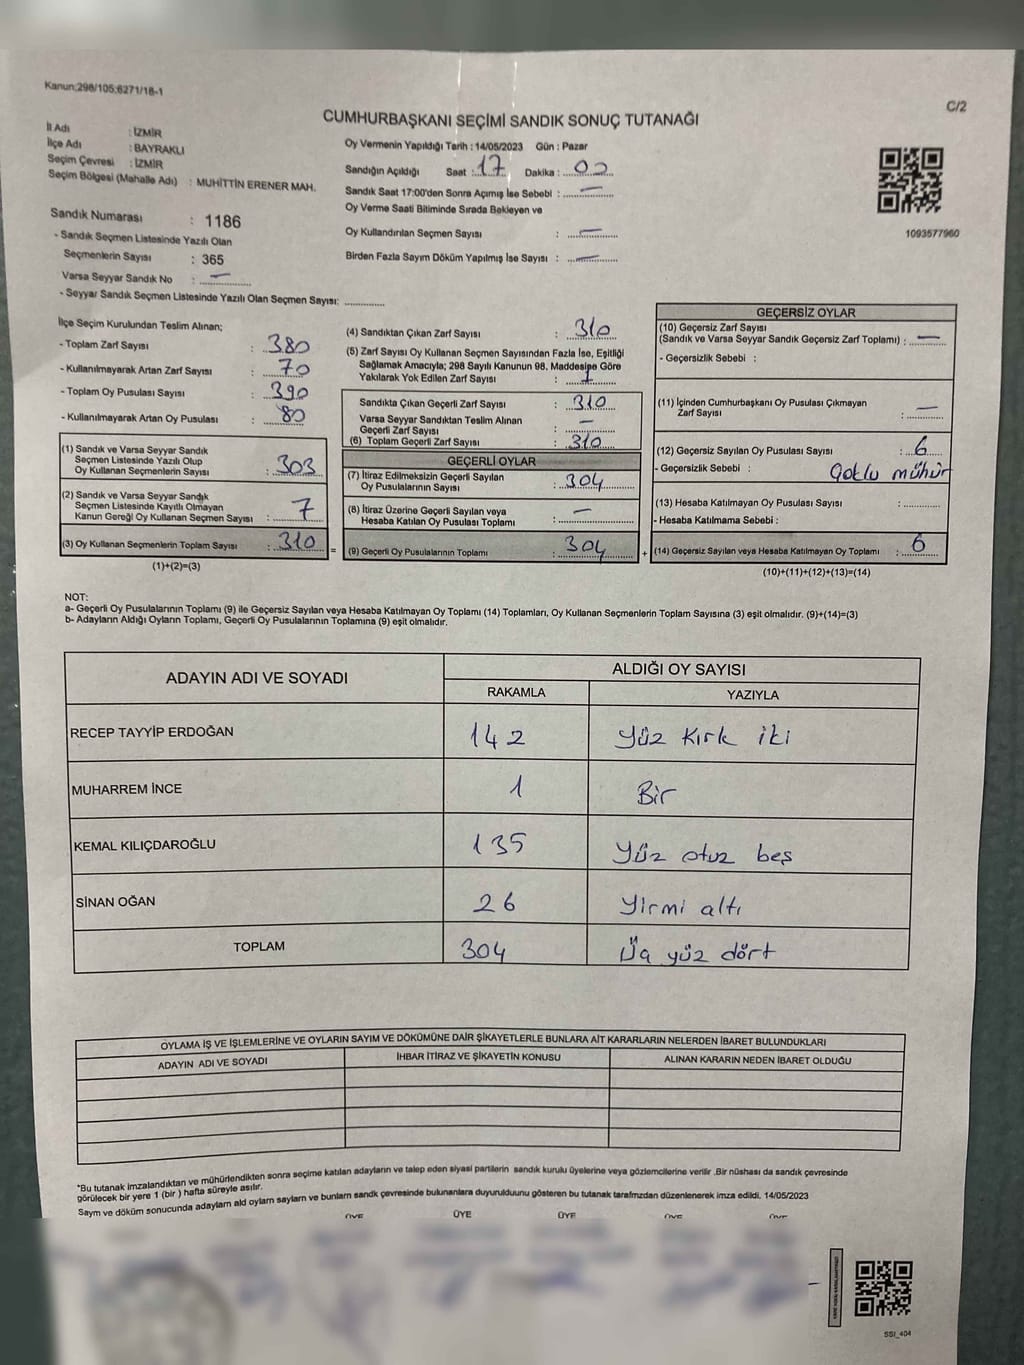 Kanun;298/105;6271/18-1
C/2
CUMHURBAŞKANI SEÇİMİ SANDIK SONUÇ TUTANAĞI
İl Adı : İZMİR
İlçe Adı : BAYRAKLI
Seçim Çevresi : İZMİR
Seçim Bölgesi (Mahalle Adı) : MUHİTTİN ERENER MAH.
Oy Vermenin Yapıldığı Tarih : 14/05/2023 Gün : Pazar
Sandığın Açıldığı Saat : 17 Dakika : 00
Sandık Saat 17:00'den Sonra Açımış İse Sebebi : —
Oy Verme Saati Bitiminde Sırada Bekleyen ve
Oy Kullandırılan Seçmen Sayısı : —
Birden Fazla Sayım Döküm Yapılmış İse Sayısı : —
1093577960
Sandık Numarası : 1186
- Sandık Seçmen Listesinde Yazılı Olan
Seçmenlerin Sayısı : 365
Varsa Seyyar Sandık No : —
- Seyyar Sandık Seçmen Listesinde Yazılı Olan Seçmen Sayısı: ............
İlçe Seçim Kurulundan Teslim Alınan;
- Toplam Zarf Sayısı : 380
- Kullanılmayarak Artan Zarf Sayısı : 70
- Toplam Oy Pusulası Sayısı : 390
- Kullanılmayarak Artan Oy Pusulası : 80
(1) Sandık ve Varsa Seyyar Sandık
Seçmen Listesinde Yazılı Olup
Oy Kullanan Seçmenlerin Sayısı : 303
(2) Sandık ve Varsa Seyyar Sandık
Seçmen Listesinde Kayıtlı Olmayan
Kanun Gereği Oy Kullanan Seçmen Sayısı : 7
(3) Oy Kullanan Seçmenlerin Toplam Sayısı : 310 =
(1)+(2)=(3)
(4) Sandıktan Çıkan Zarf Sayısı : 310
(5) Zarf Sayısı Oy Kullanan Seçmen Sayısından Fazla İse, Eşitliği
Sağlamak Amacıyla; 298 Sayılı Kanunun 98. Maddesine Göre
Yakılarak Yok Edilen Zarf Sayısı :
Sandıkta Çıkan Geçerli Zarf Sayısı : 310
Varsa Seyyar Sandıktan Teslim Alınan
Geçerli Zarf Sayısı : —
(6) Toplam Geçerli Zarf Sayısı : 310
GEÇERLİ OYLAR
(7) İtiraz Edilmeksizin Geçerli Sayılan
Oy Pusulalarının Sayısı : 304
(8) İtiraz Üzerine Geçerli Sayılan veya
Hesaba Katılan Oy Pusulası Toplamı : —
(9) Geçerli Oy Pusulalarının Toplamı : 304 +
GEÇERSİZ OYLAR
(10) Geçersiz Zarf Sayısı
(Sandık ve Varsa Seyyar Sandık Geçersiz Zarf Toplamı) : —
- Geçersizlik Sebebi :
(11) İçinden Cumhurbaşkanı Oy Pusulası Çıkmayan
Zarf Sayısı : —
(12) Geçersiz Sayılan Oy Pusulası Sayısı : 6
- Geçersizlik Sebebi : Çoklu mühür
(13) Hesaba Katılmayan Oy Pusulası Sayısı : ............
- Hesaba Katılmama Sebebi :
(14) Geçersiz Sayılan veya Hesaba Katılmayan Oy Toplamı : 6
(10)+(11)+(12)+(13)=(14)
NOT:
a- Geçerli Oy Pusulalarının Toplamı (9) ile Geçersiz Sayılan veya Hesaba Katılmayan Oy Toplamı (14) Toplamları, Oy Kullanan Seçmenlerin Toplam Sayısına (3) eşit olmalıdır. (9)+(14)=(3)
b- Adayların Aldığı Oyların Toplamı, Geçerli Oy Pusulalarının Toplamına (9) eşit olmalıdır.
ADAYIN ADI VE SOYADI ALDIĞI OY SAYISI
RAKAMLA YAZIYLA
RECEP TAYYİP ERDOĞAN 142 Yüz Kırk iki
MUHARREM İNCE 1 Bir
KEMAL KILIÇDAROĞLU 135 Yüz otuz beş
SİNAN OĞAN 26 Yirmi altı
TOPLAM 304 Üç yüz dört
OYLAMA İŞ VE İŞLEMLERİNE VE OYLARIN SAYIM VE DÖKÜMÜNE DAİR ŞİKAYETLERLE BUNLARA AİT KARARLARIN NELERDEN İBARET BULUNDUKLARI
ADAYIN ADI VE SOYADI İHBAR İTİRAZ VE ŞİKAYETİN KONUSU ALINAN KARARIN NEDEN İBARET OLDUĞU
*Bu tutanak imzalandıktan ve mühürlendikten sonra seçime katılan adayların ve talep eden siyasi partilerin sandık kurulu üyelerine veya gözlemcilerine verilir .Bir nüshası da sandık çevresinde
görülecek bir yere 1 (bir ) hafta süreyle asılır.
Sayım ve döküm sonucunda adayların ald oyların sayıları ve bunların sandk çevresinde bulunanlara duyurulduunu gösteren bu tutanak tarafmzdan düzenlenerek imza edildi. 14/05/2023
ÜYE ÜYE ÜYE ÜYE ÜYE
SSI_404